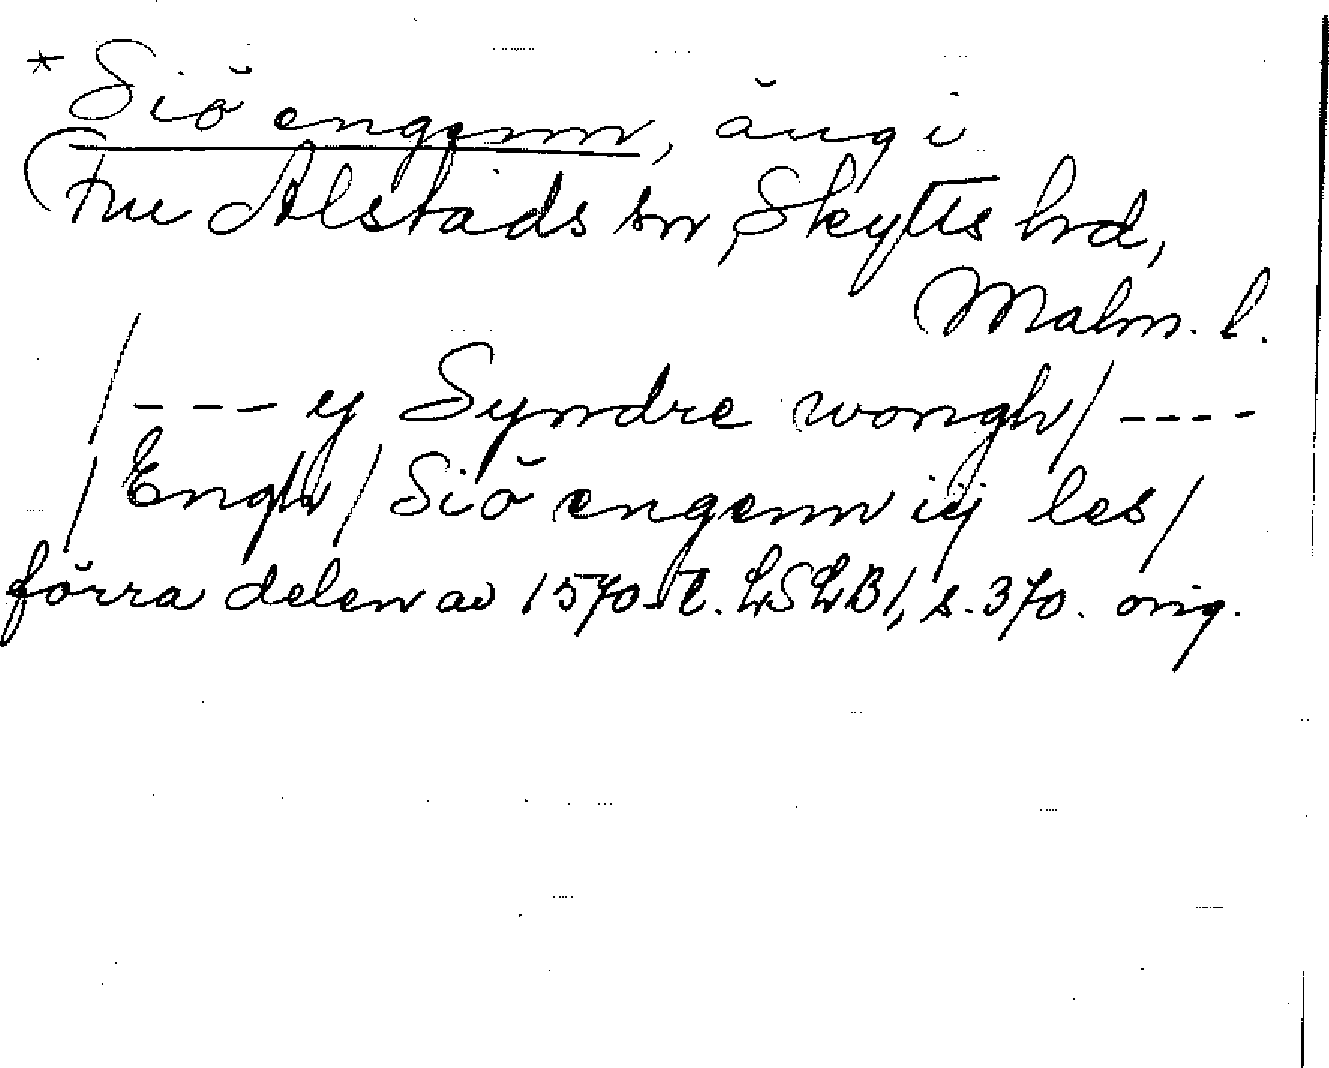 * Siö engenn, äng i
Fru Alstads sn, Skytts hrd,
Malm. l.
/ - - - y Syndre wongh / - - - -
/ Engh / Siö engenn iij les /
förra delen av 1570-t. LSLB 1, s. 370. orig.